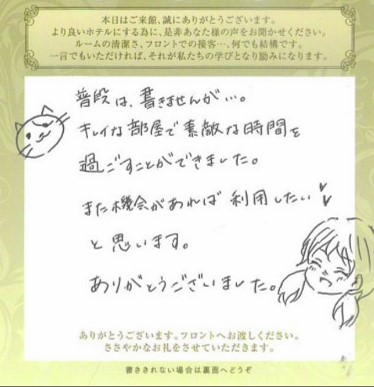 本日はご来館、誠にありがとうございます。
より良いホテルにする為に、是非あなた様の声をお聞かせください。
ルームの清潔さ、フロントでの接客…何でも結構です。
一言でもいただければ、それが私たちの学びとなり励みになります。
普段は、書きませんが…。
キレイな部屋で素敵な時間を
過ごすことができました。
また機会があれば利用したい
と思います。
ありがとうございました。
ありがとうございます。フロントへお渡しください。
ささやかなお礼をさせていただきます。
書ききれない場合は裏面へどうぞ